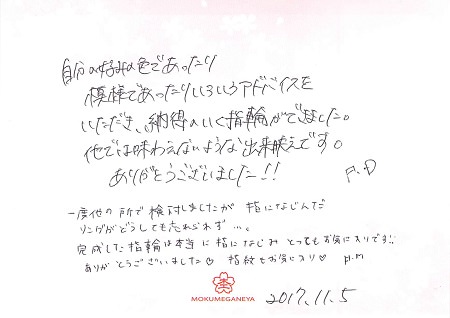 自分の好みの色であったり
模様であったりいろいろアドバイスを
いただき、納得のいく指輪ができました。
他では味わえないような出来映えです。
ありがとうございました!!
P.D
一度他の所で検討しましたが 指になじんだ
リングがどうしても忘れられず…。
完成した指輪は本当に指になじみ とってもお気に入りです!!
ありがとうございました♡ 指紋もお気に入り♡ M.M
MOKUMEGANEYA
2017.11.5